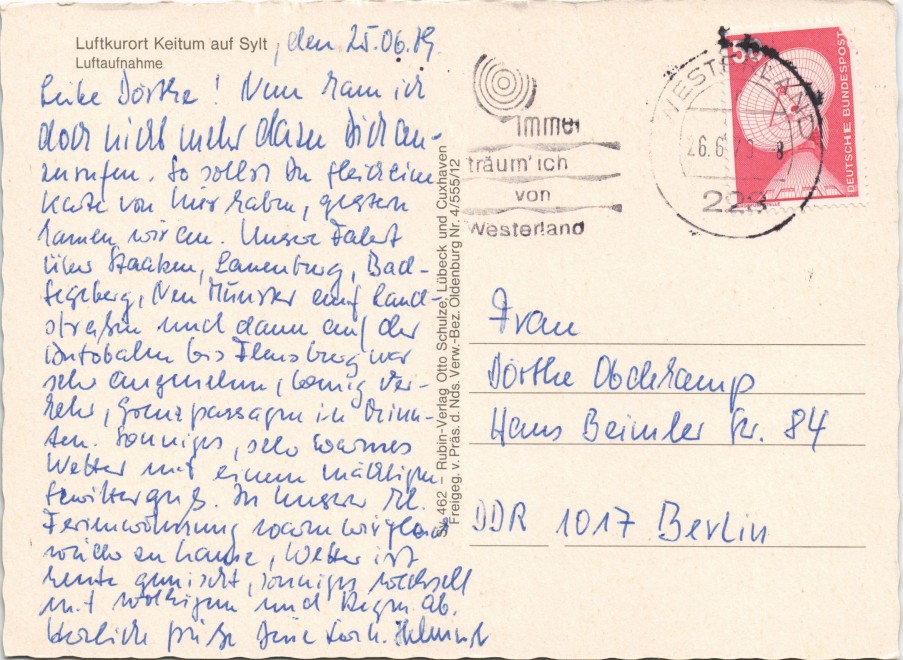 Luftkurort Keitum auf Sylt, den 25.06.79
Luftaufnahme
Liebe Dörthe! Nun kam ich
doch nicht mehr dazu Dich an-
zurufen. So sollst Du gleich eine
Karte von hier haben, gestern
kamen wir an. Unsere Fahrt
über Staaken, Lauenburg, Bad-
Segeberg, Neu Münster auf Land-
straßen und dann auf der
Autobahn bis Flensburg war
sehr angenehm, wenig Ver-
kehr, Grenzpassagen in Minu-
ten. Sonniges, sehr warmes
Wetter mit einem mächtigen
Gewitterguß. In unserer kl.
Ferienwohnung waren wir gleich
wie zu Hause, Wetter ist
heute gemischt, sonniges wechselt
mit wolkigem und Regen ab.
Herzliche Grüße Deine
Sy 462 – Rubin-Verlag Otto Schulze, Lübeck und Cuxhaven
Freigeg. v. Präs. d. Nds. Verw.-Bez. Oldenburg Nr. 4/555/12
immer
träum' ich
von
Westerland
WESTERLAND
26.6.79 8
228
50
DEUTSCHE BUNDESPOST
Frau
Dörthe Obdekamp
Hans Beimler Str. 84
DDR 1017 Berlin